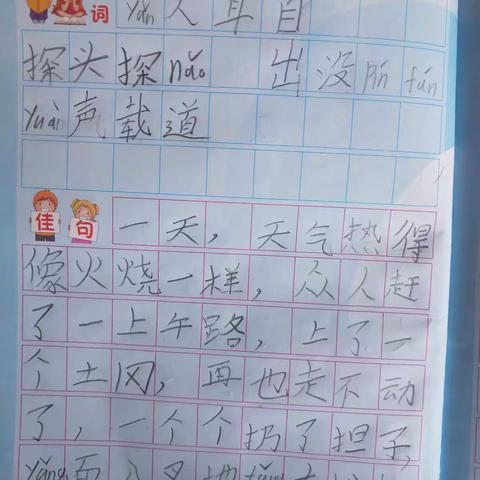 词 yǎn人耳目
探头探nǎo 出没pín fán
yuàn声载道
佳句 一天，天气热得
像火烧一样，众人赶
了一上午路，上了一
个土冈，再也走不动
了，一个个扔了担子，